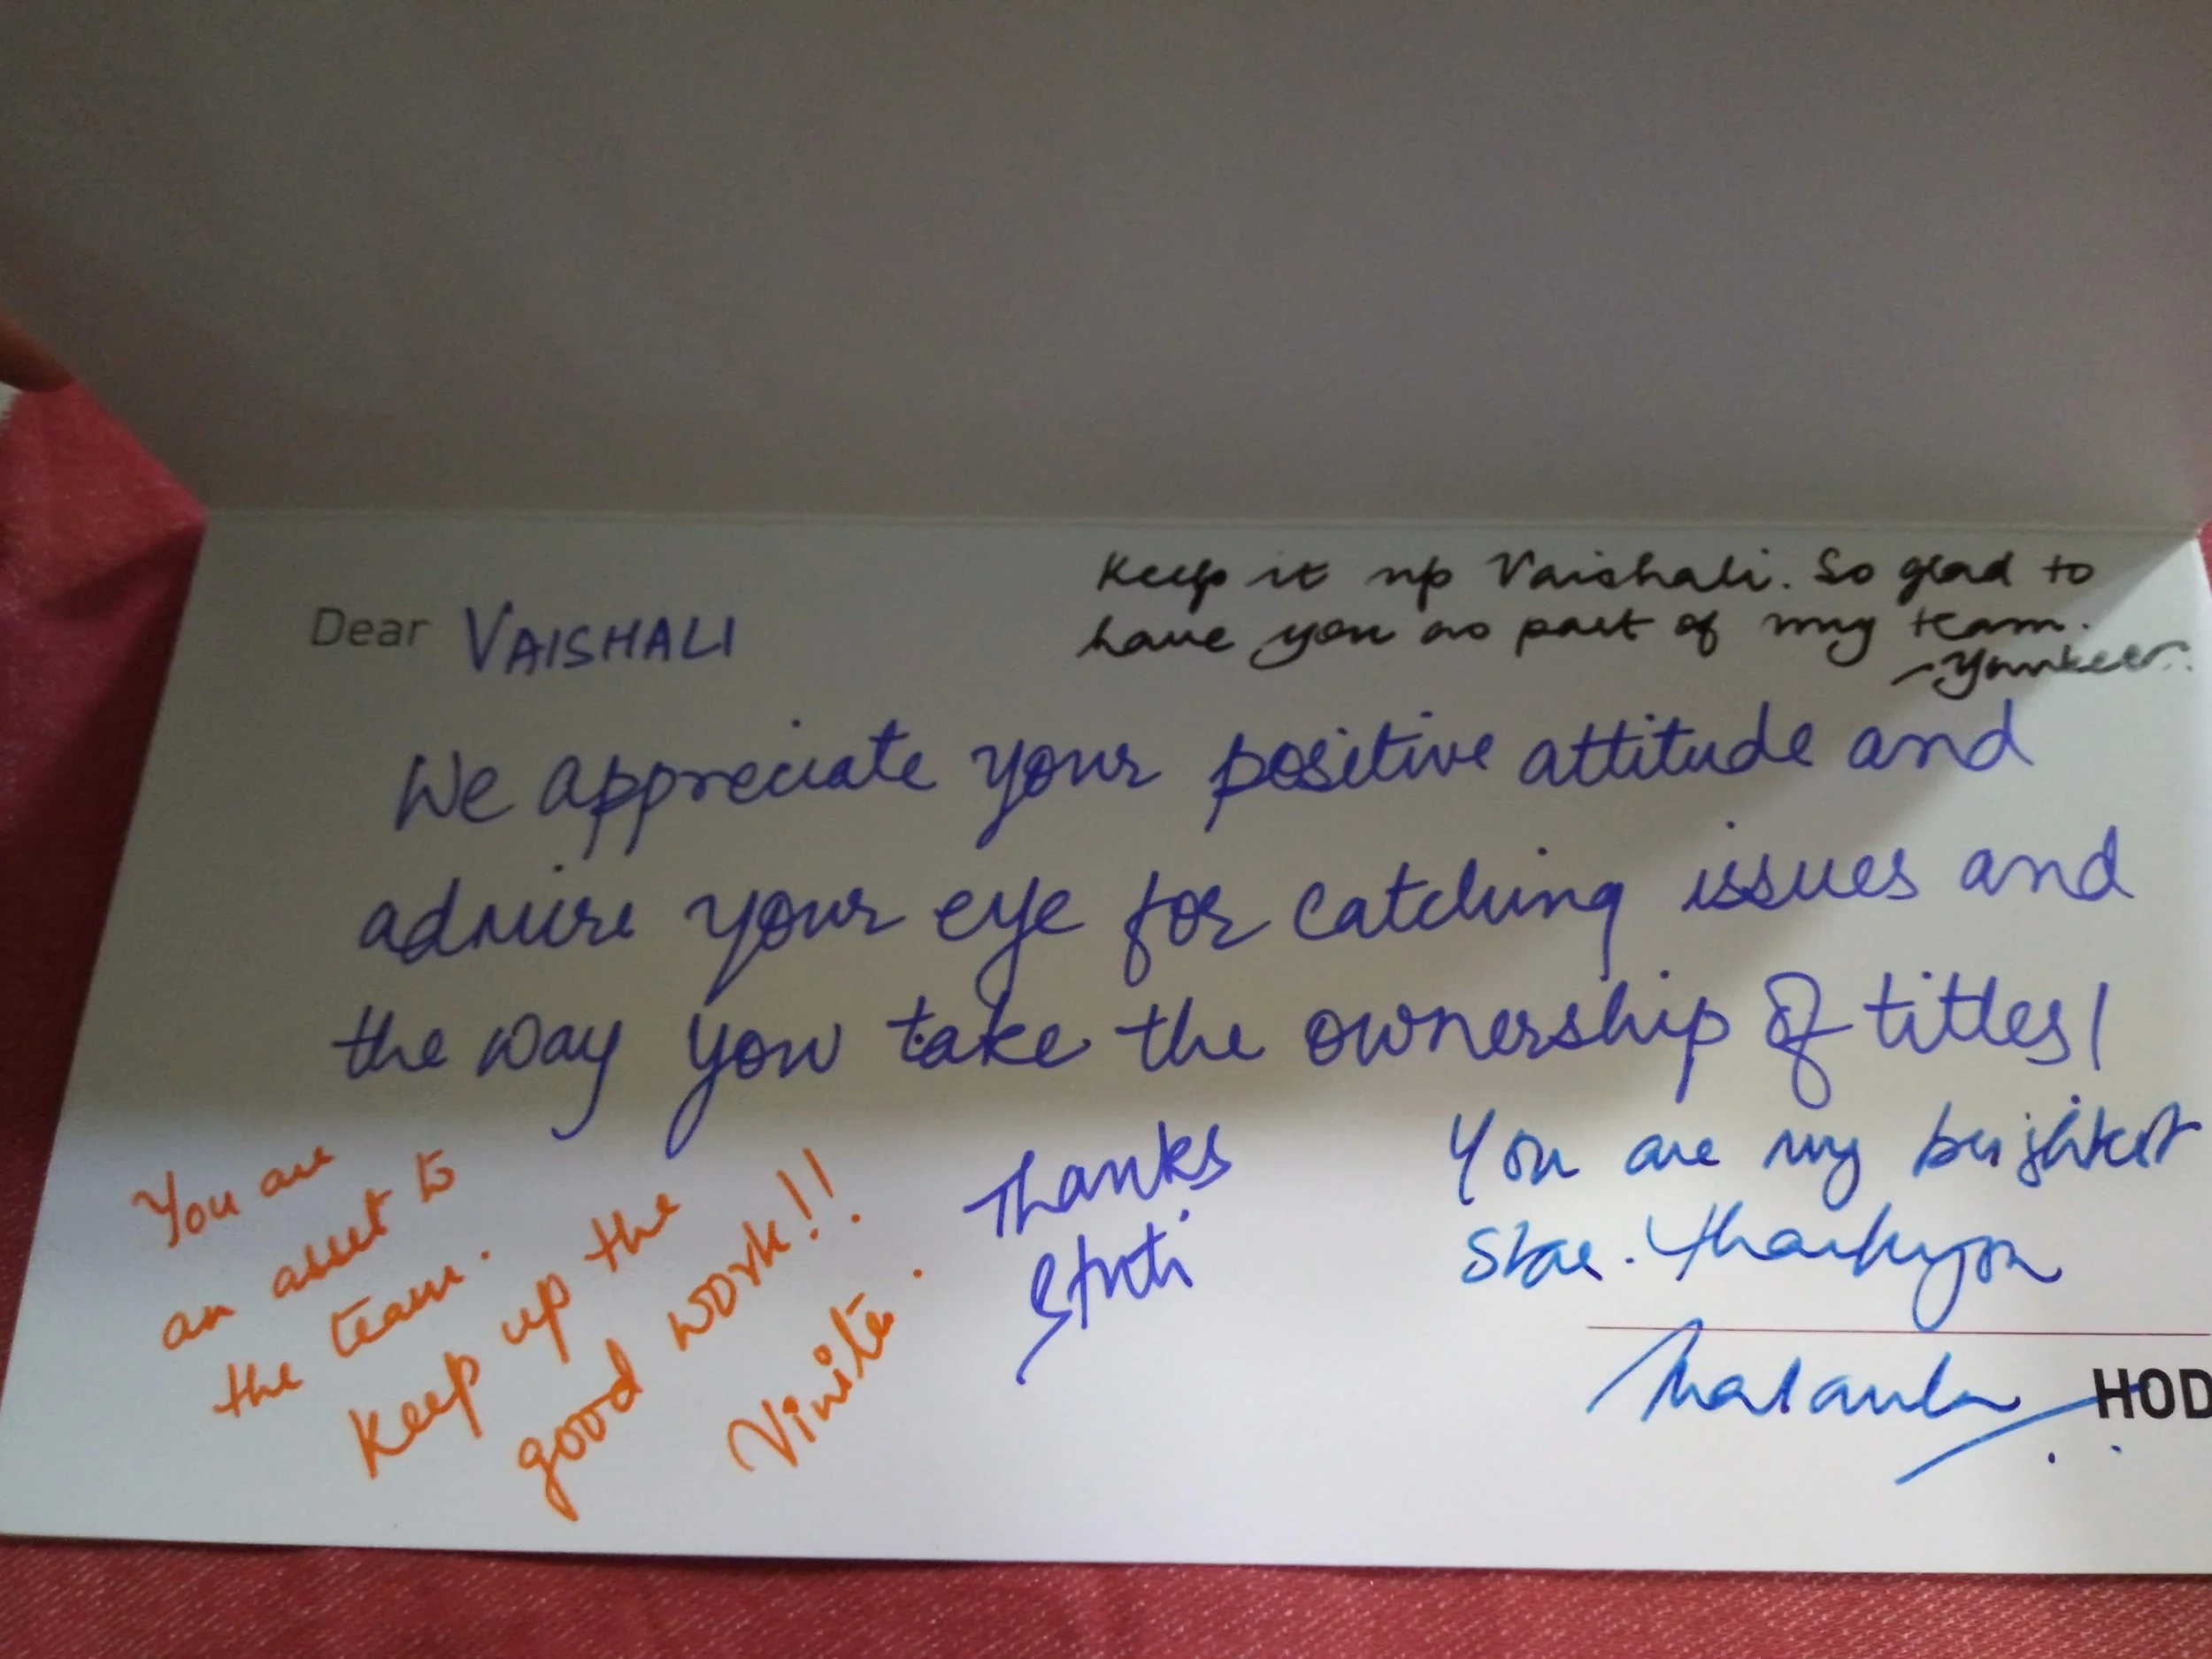 Dear VAISHALI
Keep it up Vaishali. So glad to
have you as part of my team.
We appreciate your positive attitude and
admire your eye for catching issues and
the way you take the ownership of titles!
You are
an asset to
the team.
Keep up the
good work!!
Vinita.
Thanks
You are my brightest
star. Thankyou
HOD